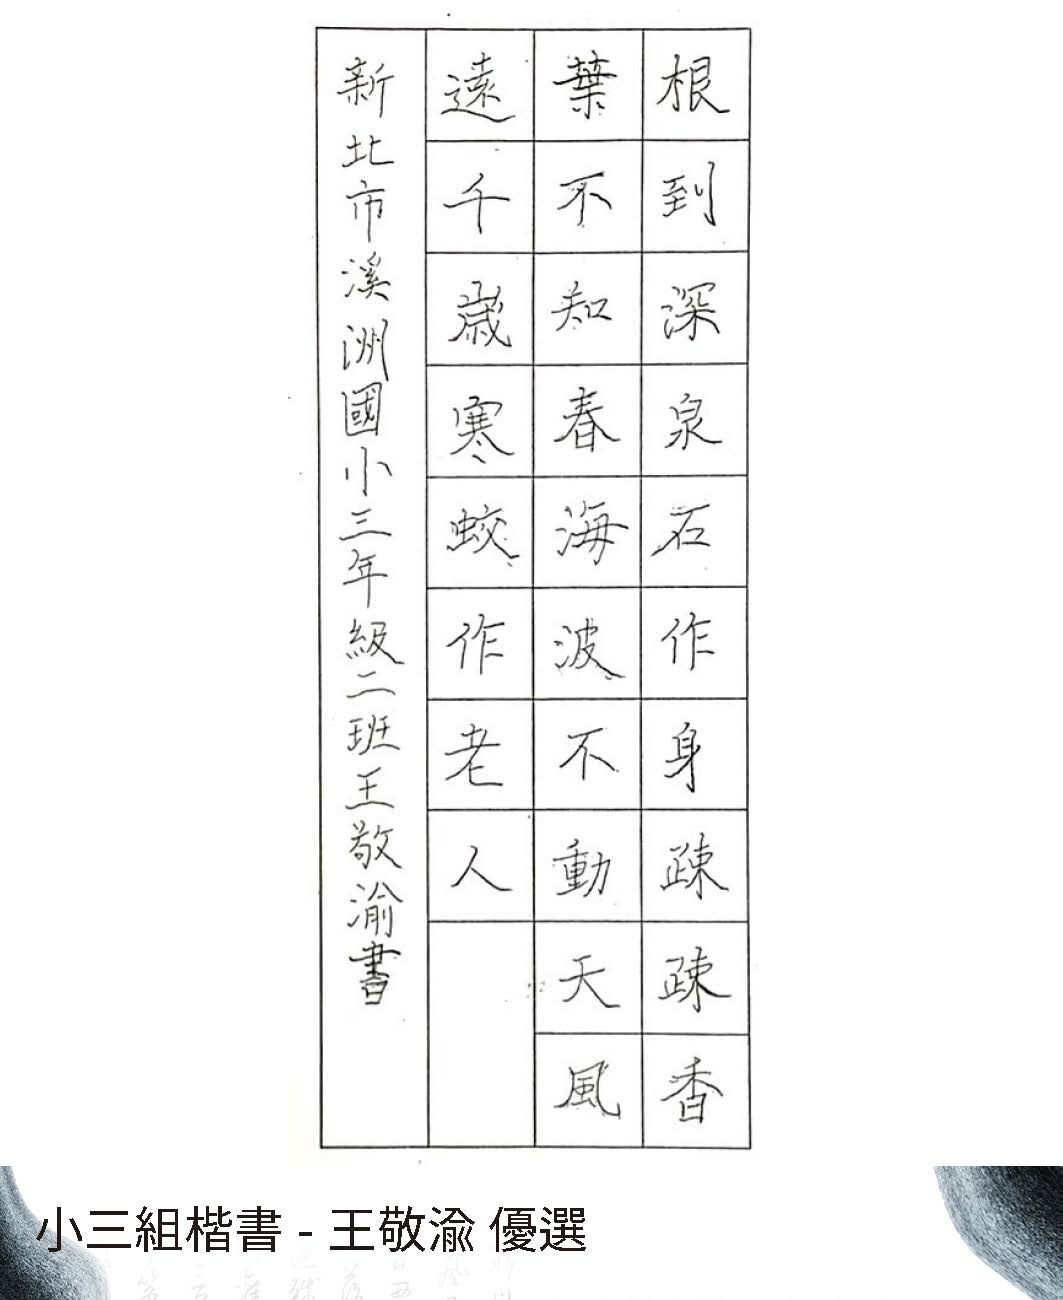 根到深泉石作身疎疎香
葉不知春海波不動天風
遠千歲寒蛟作老人
新北市溪洲國小三年級二班王敬渝書
小三組楷書 - 王敬渝 優選